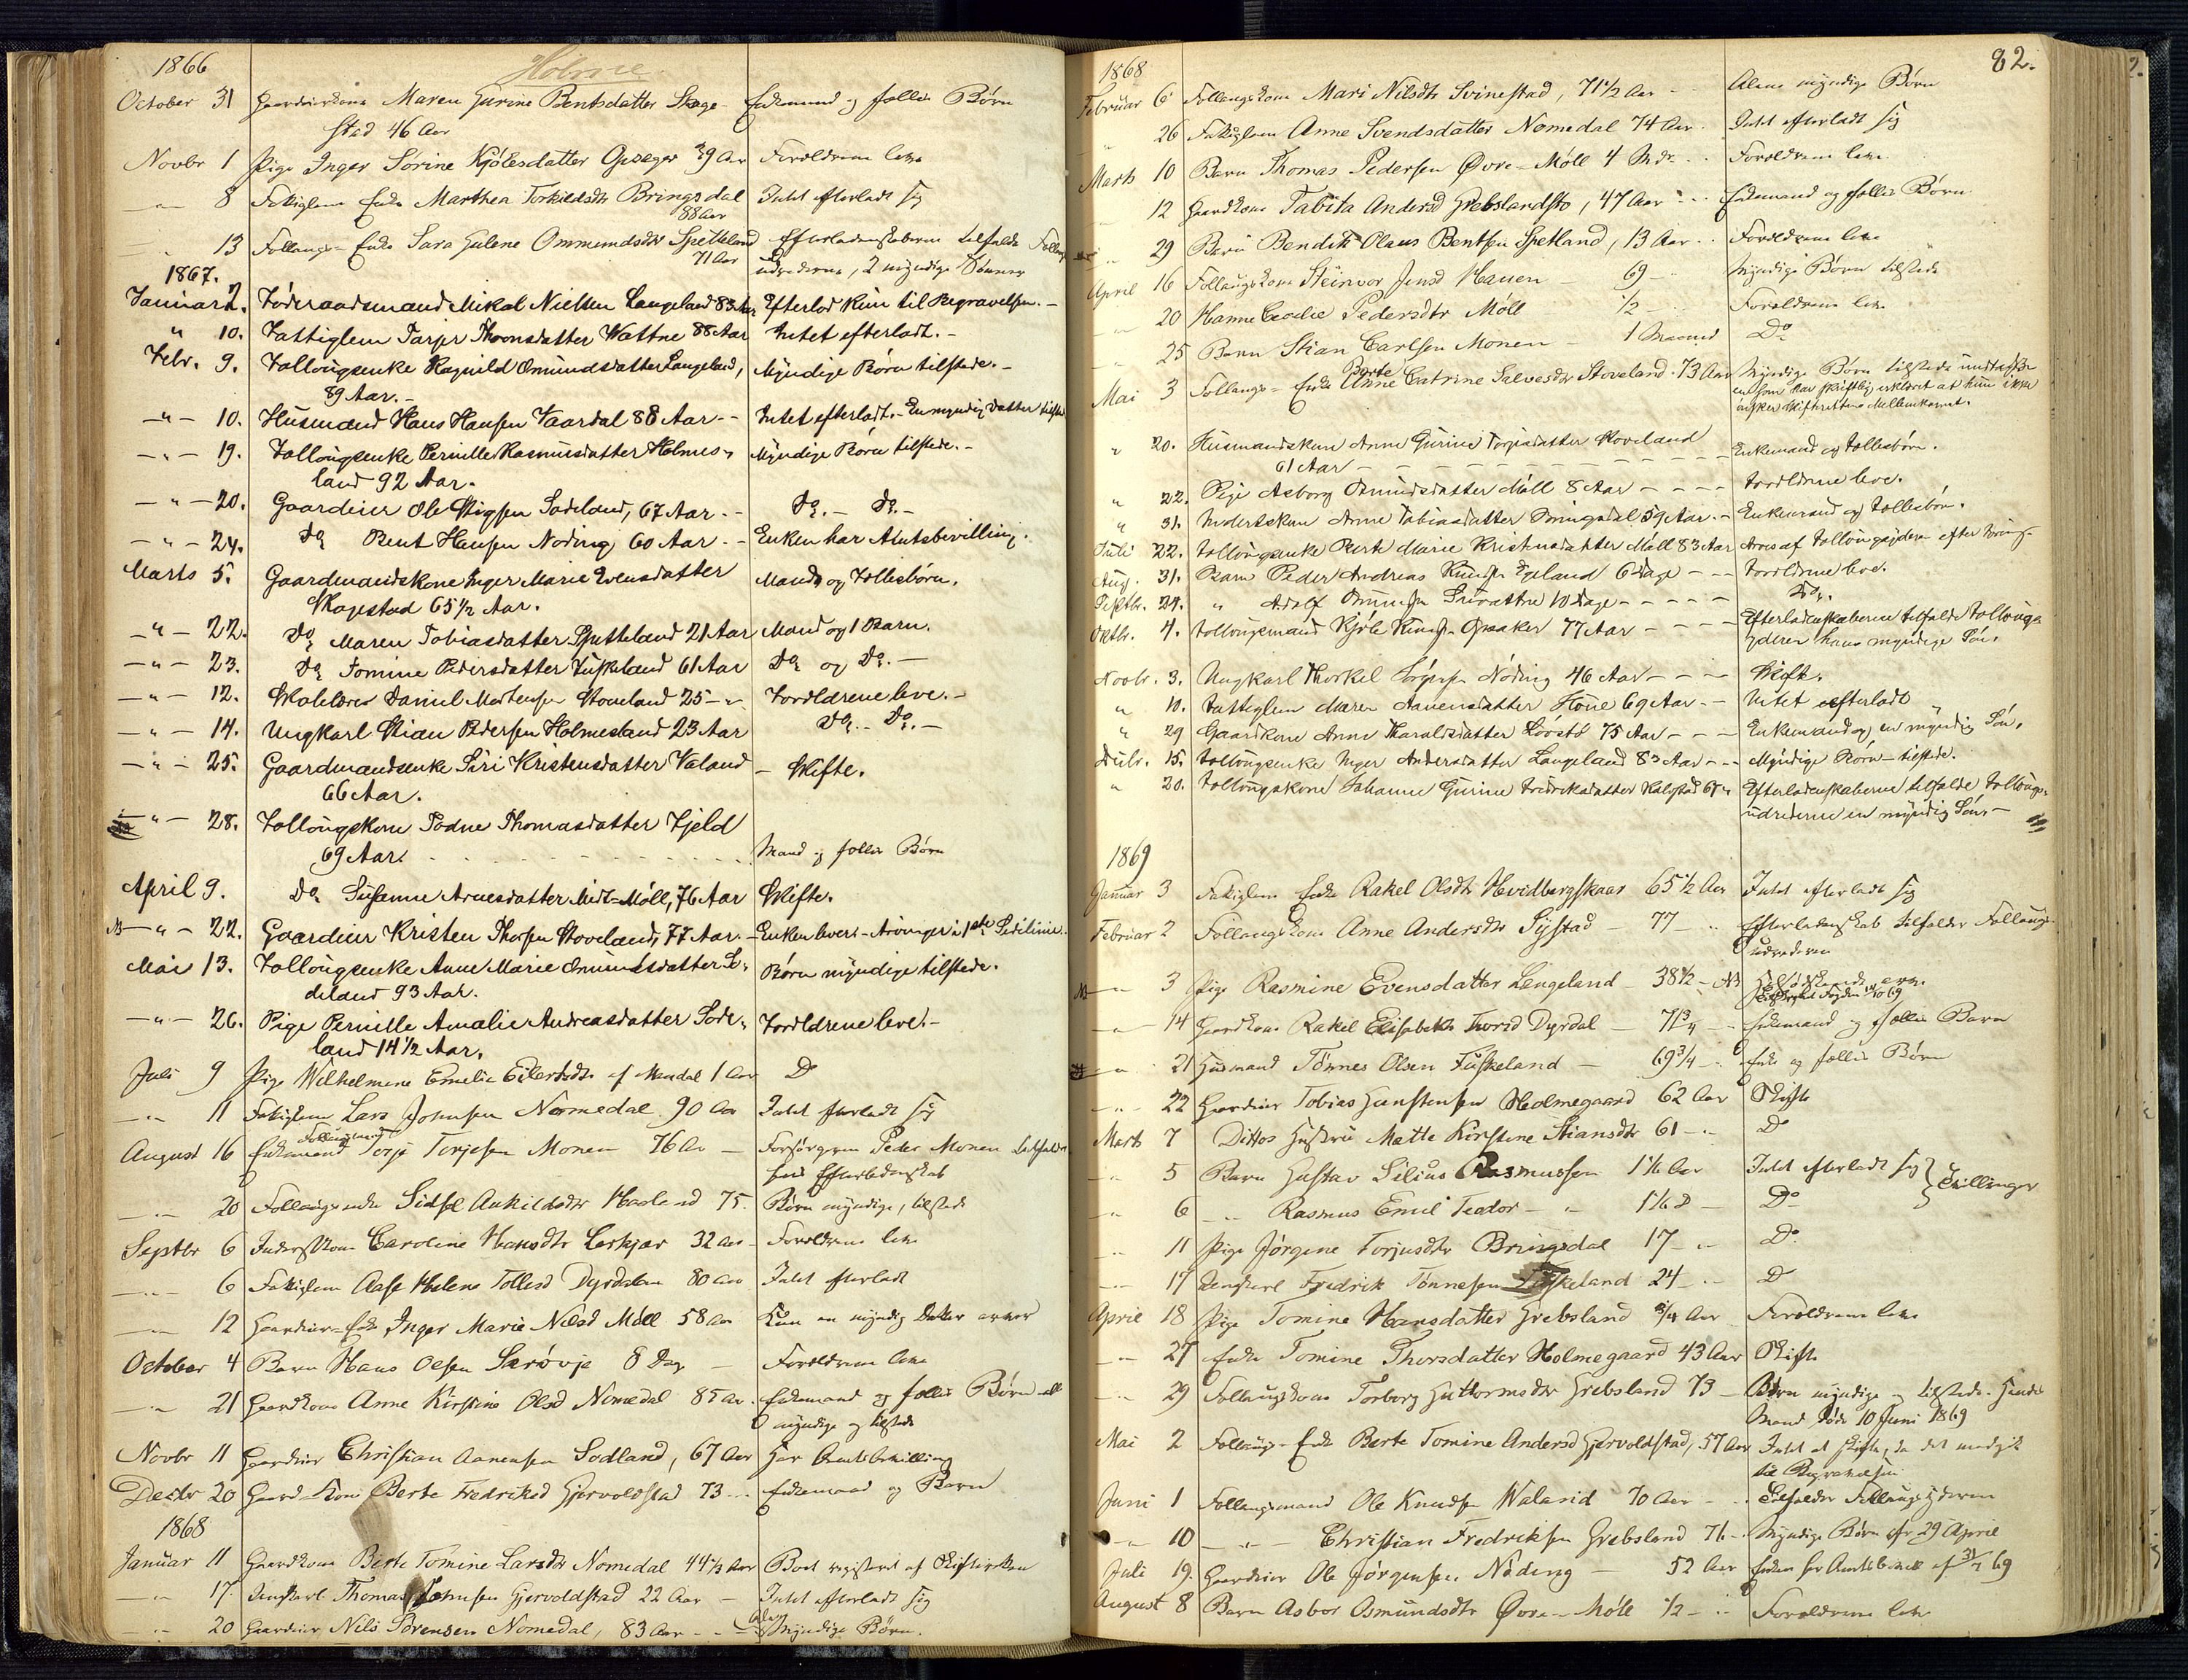 Holme
1866
October 31 Gaardeierkone Maren Gurine Bentsdatter Skage- Enkemand og fælles Børn
stad 46 Aar
Novbr 1 Pige Inger Sørine Kjølesdatter 39 Aar Forældrene leve
— " — 8 Fattiglem Enke Marthea Torkildsdtr Bringsdal Intet efterladt sig
88 Aar
13 Follaugs-Enke Sara Gulene Ommundsdtr Spetteland Efterladenskaberne tilfaldt
71 Aar udrederne, 2 myndige Sønner
1867.
Januar 2. Føderaadsmand Mikal Nielsen Langeland 83 Aar Efterlod kun til Begravelsen. —
" 10. Fattiglem Tarjer Thoonsdatter Wattne 88 Aar Intet efterladt. —
Febr. 9. Follougsenke Ragnild Omundsdatter Langeland, Myndige Børn tilstede. —
89 Aar. —
— " — 10. Husmand Hans Hansen Vaardal 88 Aar — Intet efterladt. — En myndig Datter tilstede
— " — 19. Follougsenke Pernille Rasmusdatter Holmes- Myndige Børn tilstede. —
land 92 Aar.
— " — 20. Gaardeier Ole Stigsen Sodeland, 67 Aar. — Do. — Do. —
— " — 24. Do Bent Hansen Noding 60 Aar. — Enken har Amtsbevilling.
Marts 5. Gaardmandskone Inger Marie Evensdatter Mand og Fællesbørn.
Skagestad 65½ Aar.
— " — 22. Do Maren Tobiasdatter Spetteland 21 Aar Mand og 1 Barn.
— " — 23. Do Tomine Pedersdatter Fuskeland 61 Aar Do og Do. —
— " — 12. Skolelærer Daniel Mortensen Stoveland 25 — " Forældrene leve. —
— " — 14. Ungkarl Stian Pedersen Holmesland 23 Aar Do. — Do. —
— " — 25. Gaardmandsenke Siri Kristensdatter Valand — Skifte.
66 Aar.
— " — 28. Follougskone Todne Thomasdatter Fjeld
69 Aar. Mand og fælles Børn
April 9. Do Susanne Arnesdatter Midt-Møll, 76 Aar Skifte.
— " — 22. Gaardeier Kristen Thorsen Stoveland, 77 Aar. — Enken lever — Arvinger i 1ste Sidelinie.
Mai 13. Follougsenke Anne Marie Omundsdatter So- Børn myndige tilstede.
deland 93 Aar.
— " — 26. Pige Pernille Amalie Andreasdatter Sode- Forældrene leve. —
land 14½ Aar.
Juli 9 Pige Wilhelmine Emelie Eilertsdtr af Mandal 1 Aar Do
— " — 11 Fattiglem Lars Johnsen Nomedal 90 Aar Intet efterladt sig
Follaugsmand
August 16 Enkemand Torje Torjesen Monen 76 Aar — Forsørgeren Peder Monen tilfalder
hans Efterladenskab
— " — 20 Follaugsenke Sidsel Aukildsdtr Haaland 75. Børn myndige, tilstede
Septbr 6 Inderstkone Caroline Hansdtr Lerkjær 32 Aar — Forældrene leve
— " — 6 Fattiglem Aase Helene Tollesd Dyrdalen 80 Aar Intet efterladt
— " — 12 Gaardeier-Enke Inger Marie Nilsd Møll 58 Aar Kun en myndig Datter arver
October 4 Barn Hans Olsen Skrøvje 8 Dag — Forældrene leve
— " — 21 Gaardkone Anne Kirstine Olsd Nomedal 85 Aar. Enkemand og fælles Børn — alle
myndige og tilstede
Novbr 11 Gaardeier Christian Aanensen Sodland, 67 Aar Har Amtsbevilling
Decbr 20 Gaard-Kone Berte Fredriksd Gjervoldstad 73 — Enkemand og Børn
1868
Januar 11 Gaardkone Berte Tomine Larsdtr Nomedal 44½ Aar Boet registeret af Skifteretten
— " — 17. Ungkarl Thomas Johnsen Gjervoldstad 22 Aar — Intet efterladt sig
— " — 20 Gaardeier Nils Sørensen Nomedal, 83 Aar — Alene Myndige Børn.
82.
1868
Februar 6 Follaugskone Mari Nilsdtr Svinestad, 71½ Aar — Alene myndige Børn
" 26 Fattiglem Anne Svendsdatter Nomedal 74 Aar. Intet efterladt sig
Marts 10 Barn Thomas Pedersen Øvre-Møll 4 Mdr. Forældrene leve
" 12 Gaardkone Tabita Andersd Grebslandstø, 47 Aar — Enkemand og fælles Børn
" 29 Barn Bendik Olaus Bentsen Spetland, 13 Aar. Forældrene leve
April 16 Follaugskone Steinvor Jensd Hauen — 69 — Myndige Børn tilstede
" 20 Hanne Cecilie Pedersdtr Møll — ½ — Forældrene leve
25 Barn Stian Carlsen Monen — 1 Maaned Do
Mai 3 Follaugs-Enke Berte Catrine Salvesdtr Stoveland 73 Aar Myndige Børn tilstede undtagen
en som har skriftlig erklæret at hun ikke
ønsker Skifterettens Mellemkomst.
" 20. Husmandskone Anne Gurine Torjusdatter Stoveland Enkemand og Fællesbørn.
61 Aar
" 22. Pige Asborg Omundsdatter Møll 8 Aar — Forældrene leve.
" 31. Inderstkone Anne Tobiasdatter Bringsdal 59 Aar. — Enkemand og Fællesbørn.
Juli 22. Follougsenke Berte Marie Kristensdatter Møll 83 Aar Arves af Follougsyderen
Aug. 31. Barn Peder Andreas Knudsen Egeland 6 Dage — Forældrene leve.
Septbr. 24. " Adolf Omundsen 10 Dage — Do.
Oktbr. 4. Follougsmand Kjøle Knudsen 77 Aar — Efterladenskaberne tilfaldt Follougs-
yderen hans myndige Søn.
Novbr. 3. Ungkarl Thorkel Jørgensen Nøding 46 Aar — Skifte.
" 10. Fattiglem Maren Aanensdatter Homme 69 Aar. — Intet efterladt
" 29 Gaardkone Anne Haraldsdatter Løvstø 75 Aar — Enkemand og en myndig Søn.
Decbr. 15. Follougsenke Inger Andersdatter Langeland 83 Aar — Myndige Børn tilstede.
" 20. Follougskone Johanne Gurine Fredriksdatter Halgstad 67 " Efterladenskaberne tilfaldt Follougs-
udrederne en myndig Søn. —
1869
Januar 3 Fattiglem Enke Rakel Olsdtr Hvidbergskaar 65½ Aar Intet efterladt sig
Februar 2 Follaugskone Anne Andersdtr Systad — 77 — Efterladenskab tilfalder Follaugs-
udrederen
NB — " — 3 Pige Rasmine Evensdatter Langeland — 38½ — NB Helsødskende arve.
— " — 14 Gaardkone Rakel Elisabeth Tworsd Dyrdal — 71¾ — Enkemand og fælles Børn
— " — 21 Husmand Tønnes Olsen Fuskeland — 69¾ — Enke og fælles Børn
— " — 22 Gaardeier Tobias Gunstensen Holmegaard 62 Aar Skifte
Marts 7 Dittos Hustru Mette Kirstine Stiansdtr 61 — " Do
— " — 5 Barn Gustav Silius Rasmussen 1⅙ Aar Intet efterladt sig } Tvillinger
— " — 6 — " — Rasmus Emil Teodor — " — 1⅙ Do — Do
— " — 11 Pige Jørgine Torjusdtr Bringsdal 17 — " — Do.
— " — 17 Ungkarl Fredrik Tønnesen Fuskeland 24 — " — Do
April 18 Pige Tomine Hansdatter Grebsland ¾ Aar Forældrene leve
— " — 27 Enke Tomine Thorsdatter Holmegaard 43 Aar Skifte
— " — 29 Follaugskone Torborg Guttormsdtr Grebsland 73 — Børn myndige og tilstede. Hendes
Mand døde 10 Juni 1869
Mai 2 Follaugs-Enke Berte Tomine Andersd Gjervoldstad, 57 Aar Intet at skifte, da det medgik
til Begravelsen
Juni 1 Follaugsmand Ole Knudsen Waland 70 Aar — Tilfalder Follaugsyderen
— " — 10 — " — Christian Fredriksen Grebsland 76 — Myndige Børn cfr 29 April
Juli 19. Gaardeier Ole Jørgensen Nøding — 52 Aar Enken har Amtsbevill. af 31/7 69
August 8 Barn Asbor Osmundsdtr Øvre-Møll ½ — " Forældrene leve